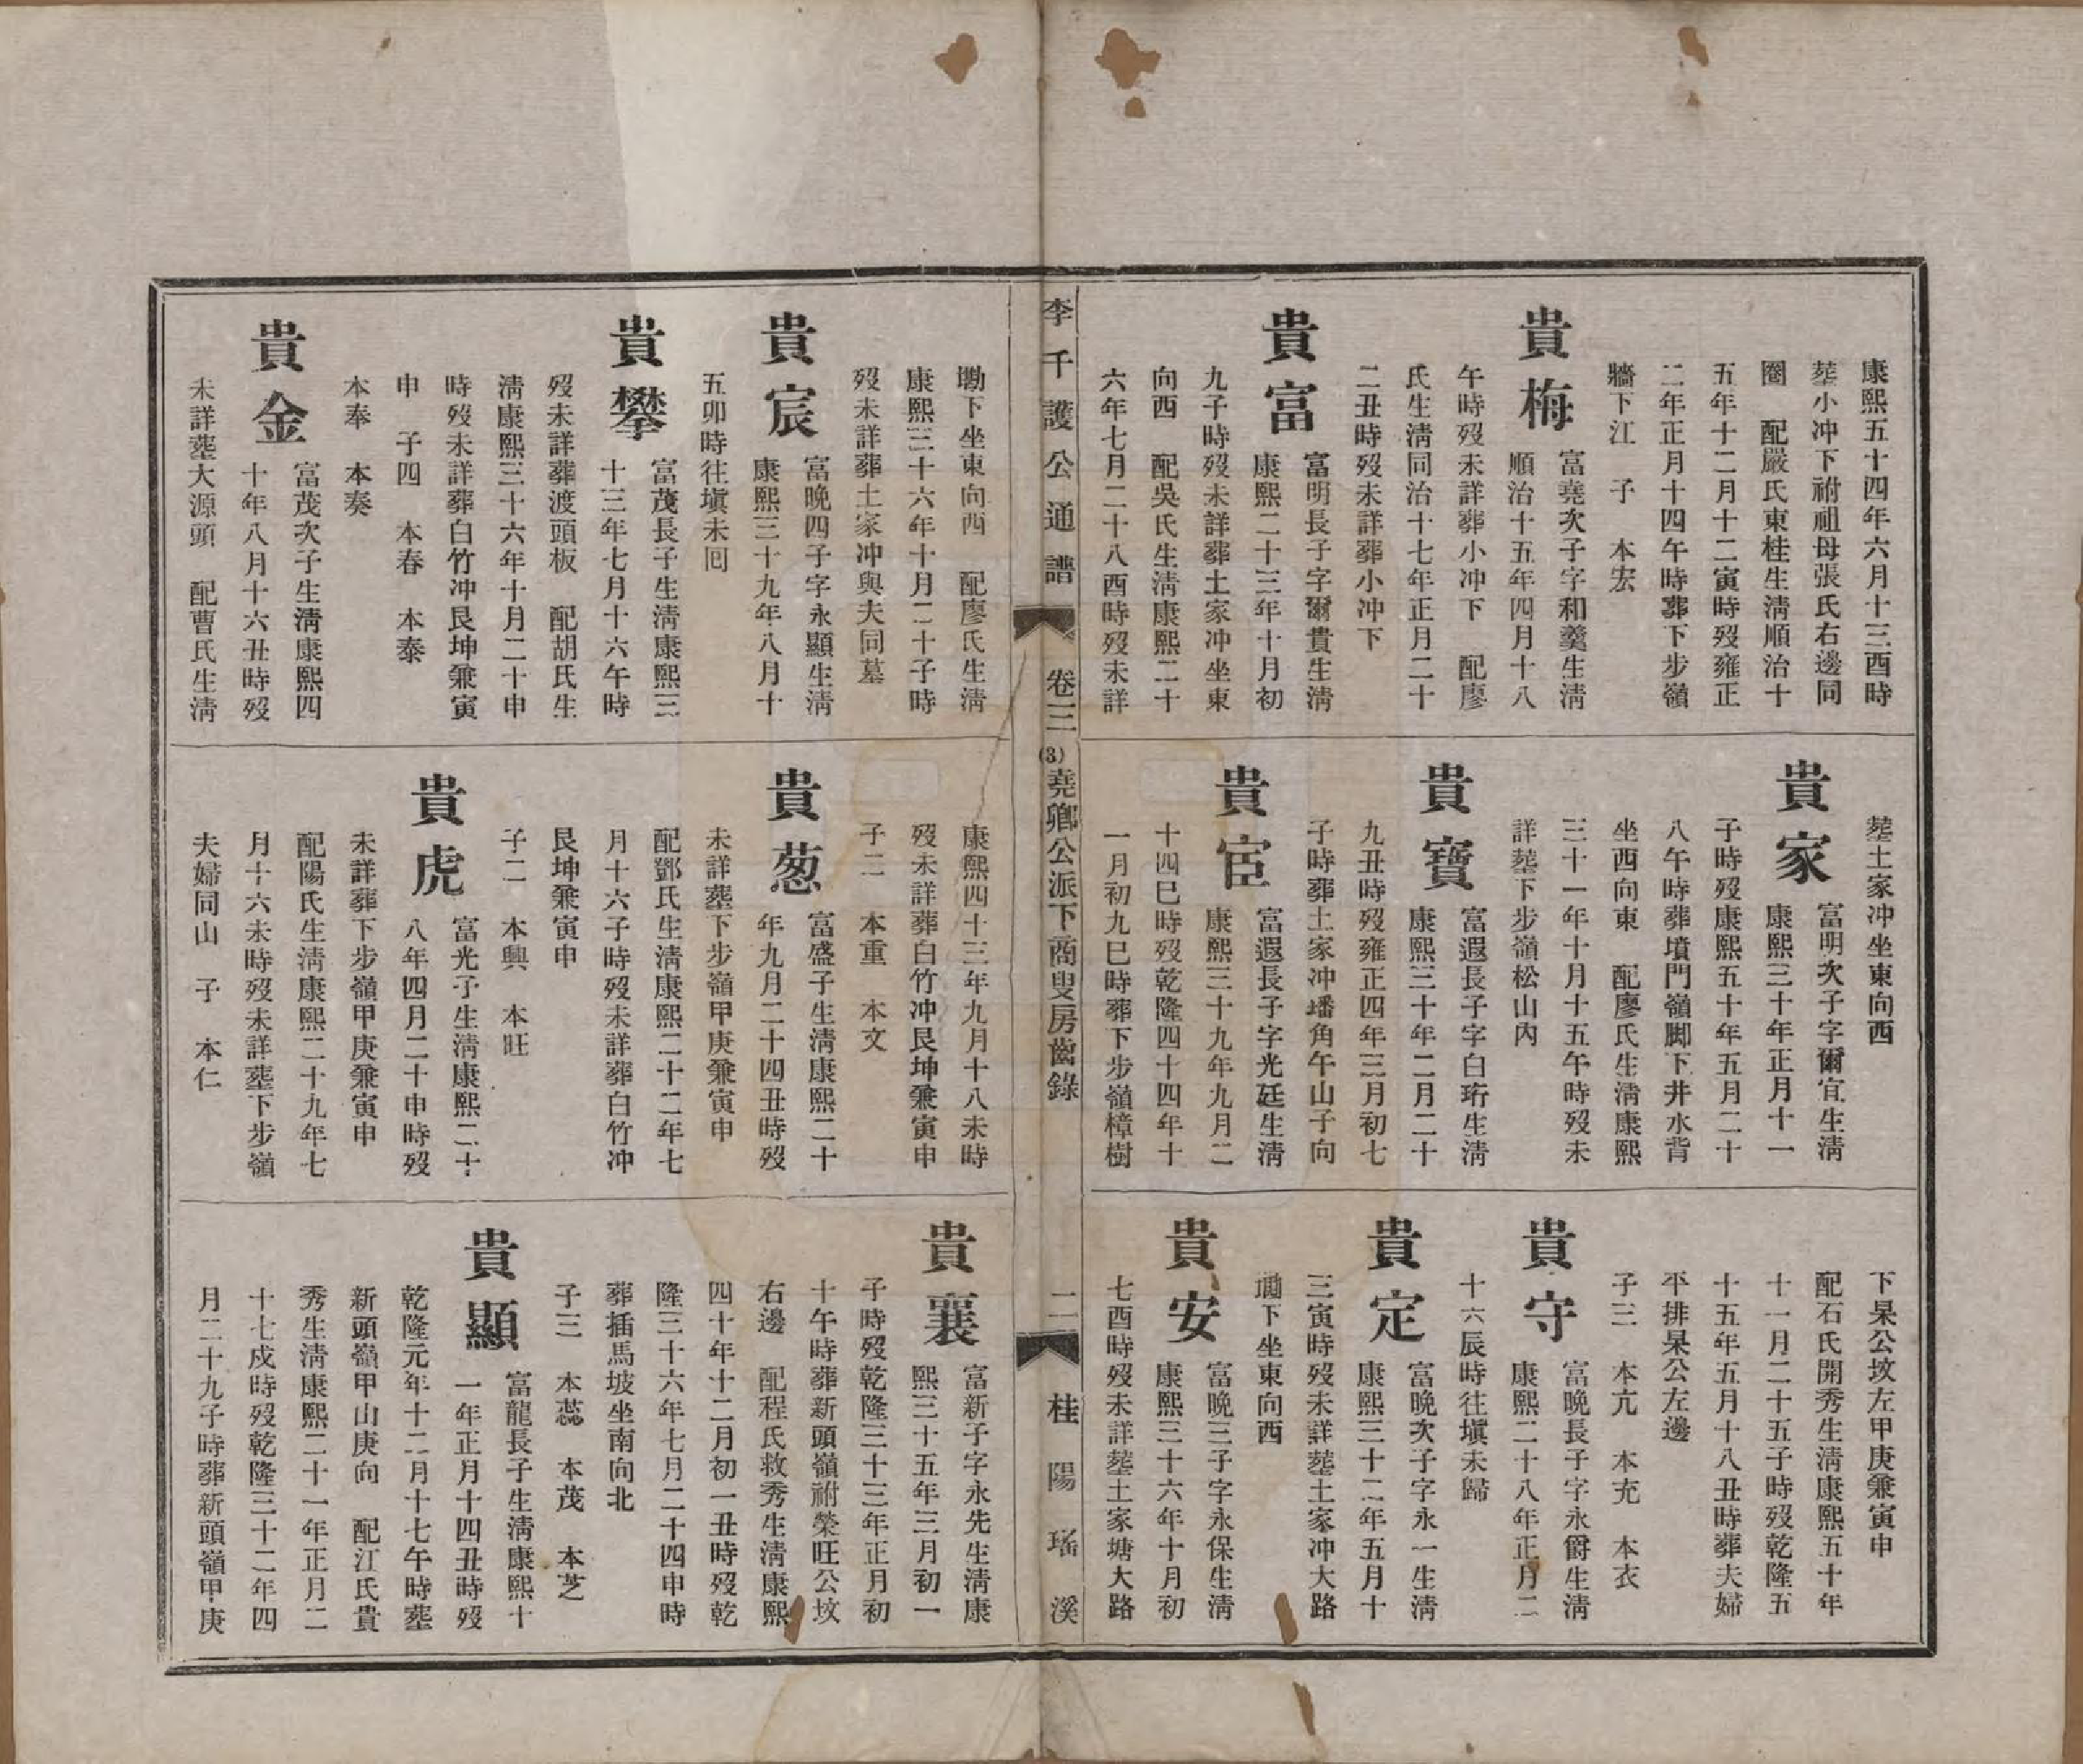 康熙五十四年六月十三酉時
塟小冲下祔祖母張氏右邊同
圈　配嚴氏東桂生淸順治十
五年十二月十二寅時歿雍正
二年正月十四午時葬下步嶺
牆下江　子　本宏
貴梅
富堯次子字和羹生淸
順治十五年四月十八
午時歿未詳葬小冲下　配廖
氏生淸同治十七年正月二十
二丑時歿未詳葬小冲下
貴富
富明長子字爾貴生淸
康熙二十三年十月初
九子時歿未詳葬土家冲坐東
向西　配吳氏生淸康熙二十
六年七月二十八酉時歿未詳
塟土家冲坐東向西
貴家
富明次子字爾宜生淸
康熙三十年正月十一
子時歿康熙五十年五月二十
八午時葬墳門嶺脚下井水背
坐西向東　配廖氏生淸康熙
三十一年十月十五午時歿未
詳塟下步嶺松山內
貴寶
富遐長子字白珩生淸
康熙三十年二月二十
九丑時歿雍正四年三月初七
子時葬土家冲墦角午山子向
貴宦
富遐長子字光廷生淸
康熙三十九年九月二
十四巳時歿乾隆四十四年十
一月初九巳時葬下步嶺樟樹
下杲公坟左甲庚兼寅申
配石氏開秀生淸康熙五十年
十一月二十五子時歿乾隆五
十五年五月十八丑時葬夫婦
平排杲公左邊
子三　本亢　本充　本衣
貴守
富晚長子字永爵生淸
康熙二十八年正月二
十六辰時往塡未歸
貴定
富晚次子字永一生淸
康熙三十二年五月十
三寅時歿未詳塟土家冲大路
坐東向西
貴安
富晚三子字永保生淸
康熙三十六年十月初
七酉時歿未詳塟土家塘大路
李千護公通譜
卷三
(3)堯卿公派下商叟房齒錄
二
桂陽瑤溪
坐東向西　配廖氏生淸
康熙三十六年十月二十子時
歿未詳葬土家冲與夫同墓
貴宸
富晚四子字永顯生淸
康熙三十九年八月十
五卯時往塡未囘
貴攀
富茂長子生淸康熙三
十三年七月十六午時
歿未詳葬渡頭板　配胡氏生
淸康熙三十六年十月二十申
時歿未詳葬白竹冲艮坤兼寅
申　子四　本春　本泰
本奉　本奏
貴金
富茂次子生淸康熙四
十年八月十六丑時歿
未詳塟大源頭　配曹氏生淸
康熙四十三年九月十八未時
歿未詳葬白竹冲艮坤兼寅申
子二　本重　本文
貴葱
富盛子生淸康熙二十
年九月二十四丑時歿
未詳塟下步嶺甲庚兼寅申
配鄧氏生淸康熙二十二年七
月十六子時歿未詳葬白竹冲
艮坤兼寅申
子二　本興　本旺
貴虎
富光子生淸康熙二十
八年四月二十申時歿
未詳葬下步嶺甲庚兼寅申
配陽氏生淸康熙二十九年七
月十六未時歿未詳塟下步嶺
夫婦同山　子　本仁
貴襄
富新子字永先生淸康
熙三十五年三月初一
子時歿乾隆三十三年正月初
十午時葬新頭嶺祔榮旺公坟
右邊　配程氏救秀生淸康熙
四十年十二月初一丑時歿乾
隆三十六年七月二十四申時
葬插馬坡坐南向北
子三　本蕊　本茂　本芝
貴顯
富龍長子生淸康熙十
一年正月十四丑時歿
乾隆元年十二月十七午時塟
新頭嶺甲山庚向　配江氏貴
秀生淸康熙二十一年正月二
十七戍時歿乾隆三十二年四
月二十九子時葬新頭嶺甲庚